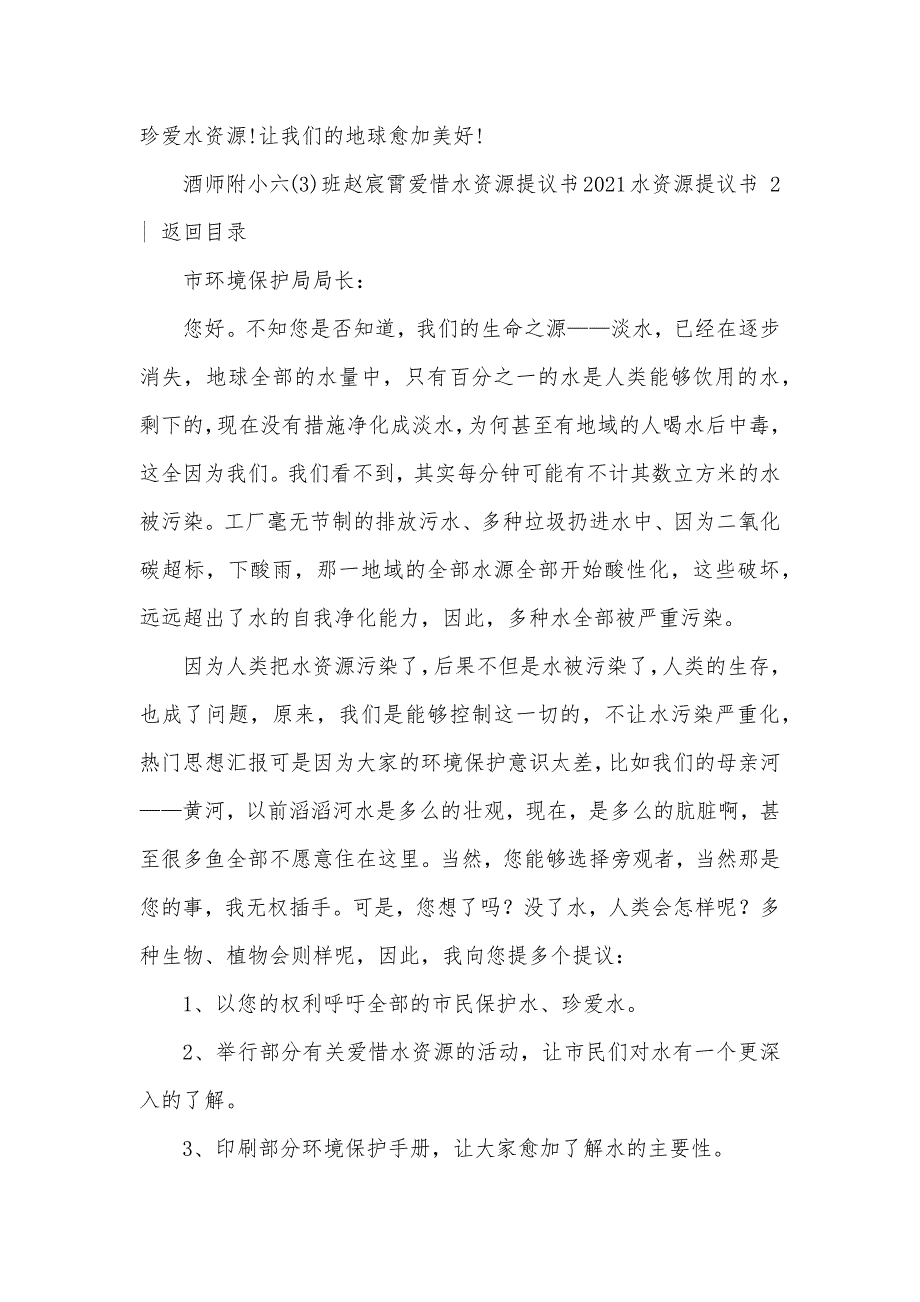 珍爱水资源!让我们的地球愈加美好!
酒师附小六(3)班赵宸霄爱惜水资源提议书2021水资源提议书 2
| 返回目录
市环境保护局局长:
您好。不知您是否知道，我们的生命之源——淡水，已经在逐步
消失，地球全部的水量中，只有百分之一的水是人类能够饮用的水，
剩下的，现在没有措施净化成淡水，为何甚至有地域的人喝水后中毒，
这全因为我们。我们看不到，其实每分钟可能有不计其数立方米的水
被污染。工厂毫无节制的排放污水、多种垃圾扔进水中、因为二氧化
碳超标，下酸雨，那一地域的全部水源全部开始酸性化，这些破坏，
远远超出了水的自我净化能力，因此，多种水全部被严重污染。
因为人类把水资源污染了，后果不但是水被污染了，人类的生存，
也成了问题，原来，我们是能够控制这一切的，不让水污染严重化，
热门思想汇报可是因为大家的环境保护意识太差，比如我们的母亲河
——黄河，以前滔滔河水是多么的壮观，现在，是多么的肮脏啊，甚
至很多鱼全部不愿意住在这里。当然，您能够选择旁观者，当然那是
您的事，我无权插手。可是，您想了吗？没了水，人类会怎样呢？多
种生物、植物会则样呢，因此，我向您提多个提议:
1、以您的权利呼吁全部的市民保护水、珍爱水。
2、举行部分有关爱惜水资源的活动，让市民们对水有一个更深
入的了解。
3、印刷部分环境保护手册，让大家愈加了解水的主要性。